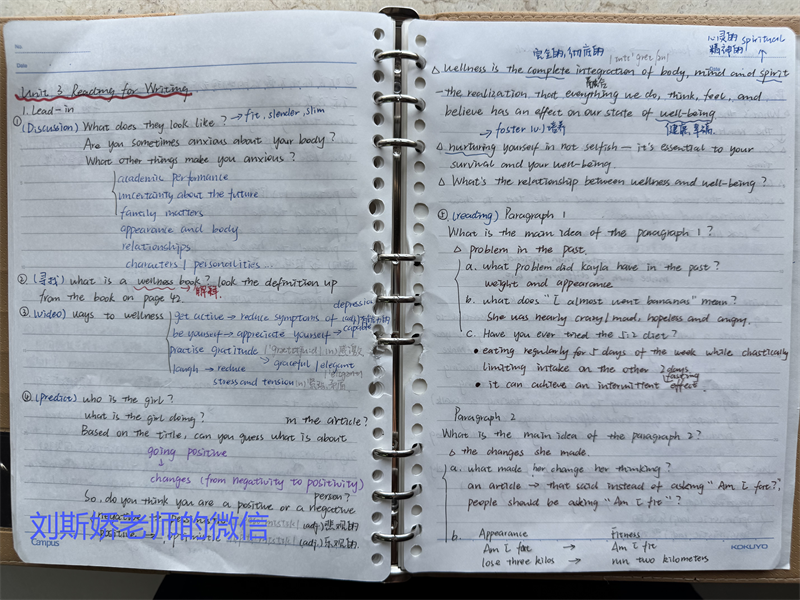 No.
Date
Unit 3 Reading for Writing
1. Lead-in
① (Discussion) What does they look like? → fit, slender, slim
Are you sometimes anxious about your body?
What other things make you anxious?
academic performance
uncertainty about the future
family matters
appearance and body
relationships
characters / personalities
② (寻找) what is a wellness book? look the definition up
from the book on page 42.
③ (video) ways to wellness
get active → reduce symptoms of
be yourself → appreciate yourself → capable
practise gratitude
graceful / elegant
laugh → reduce
stress and tension
④ (predict) who is the girl?
what is the girl doing? in the article?
Based on the title, can you guess what is about
going positive
↓
changes (from negativity to positivity)
So, do you think you are a positive or a negative
person?
(adj.) 悲观的
(adj.) 乐观的
刘斯娇老师的微信
Campus
心灵的 spiritual
精神的
完全的,彻底的
△ Wellness is the complete integration of body, mind and spirit
-the realization that everything we do, think, feel, and
believe has an effect on our state of well-being.
→ foster (v.) 培养
健康,幸福
△ nurturing yourself in not selfish — it's essential to your
survival and your well-being.
△ What's the relationship between wellness and well-being?
(reading) Paragraph 1
What is the main idea of the paragraph 1?
△ problem in the past.
a. what problem did kayla have in the past?
weight and appearance
b. what does "I almost went bananas" mean?
She was nearly crazy / mad, hopeless and angry.
c. Have you ever tried the 5:2 diet?
• eating regularly for 5 days of the week while chastically
limiting intake on the other 2 days
fasting
• it can achieve an intermittent effect.
Paragraph 2
What is the main idea of the paragraph 2?
△ the changes she made.
a. what made her change her thinking?
an article → that said instead of asking "Am I fat?",
people should be asking "Am I fit"?
b. Appearance Fitness
Am I fat → Am I fit
lose three kilos → run two kilometers
KOKUYO